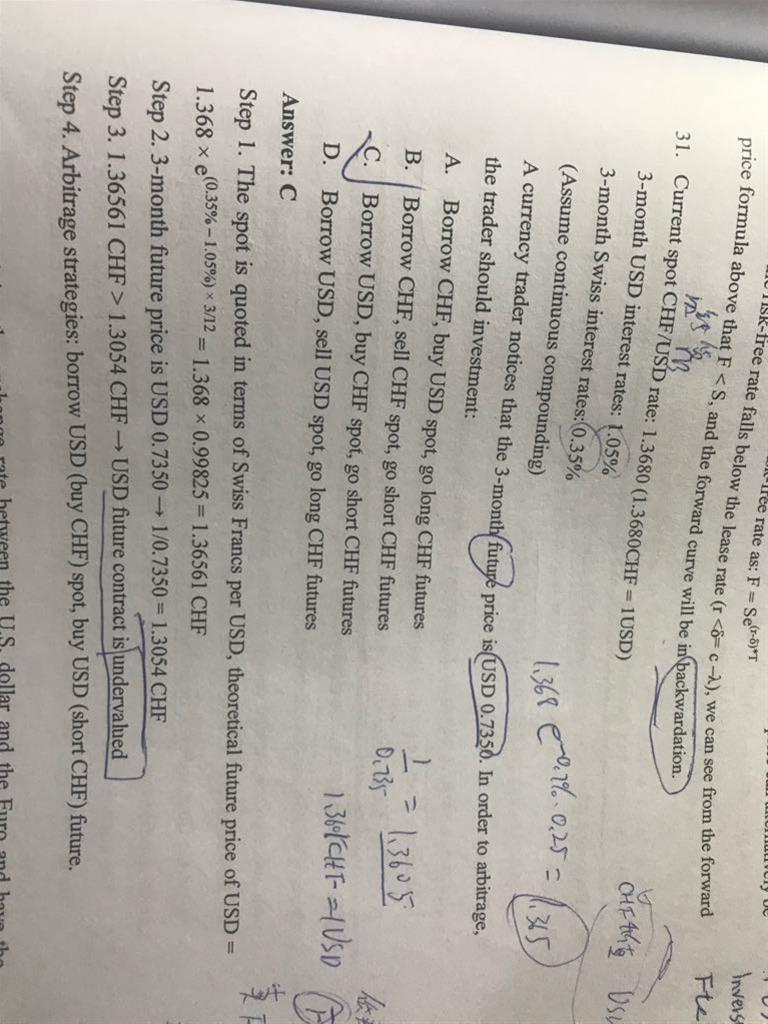 price formula above that F < S, and the forward curve will be in backwardation.
31. Current spot CHF/USD rate: 1.3680 (1.3680CHF = 1USD)
3-month USD interest rates: 1.05%
3-month Swiss interest rates: 0.35%
(Assume continuous compounding)
A currency trader notices that the 3-month future price is USD 0.7350. In order to arbitrage,
the trader should investment:
A. Borrow CHF, buy USD spot, go long CHF futures
B. Borrow CHF, sell CHF spot, go short CHF futures
C. Borrow USD, buy CHF spot, go short CHF futures
D. Borrow USD, sell USD spot, go long CHF futures
Answer: C
Step 1. The spot is quoted in terms of Swiss Francs per USD, theoretical future price of USD =
1.368 × e^(0.35% − 1.05%) × 3/12 = 1.368 × 0.99825 = 1.36561 CHF
Step 2. 3-month future price is USD 0.7350 → 1/0.7350 = 1.3054 CHF
Step 3. 1.36561 CHF > 1.3054 CHF → USD future contract is undervalued
Step 4. Arbitrage strategies: borrow USD (buy CHF) spot, buy USD (short CHF) future.
1.368 e^-0.7%·0.25 = 1.365
1/0.735 = 1.3605
CHF = 1USD